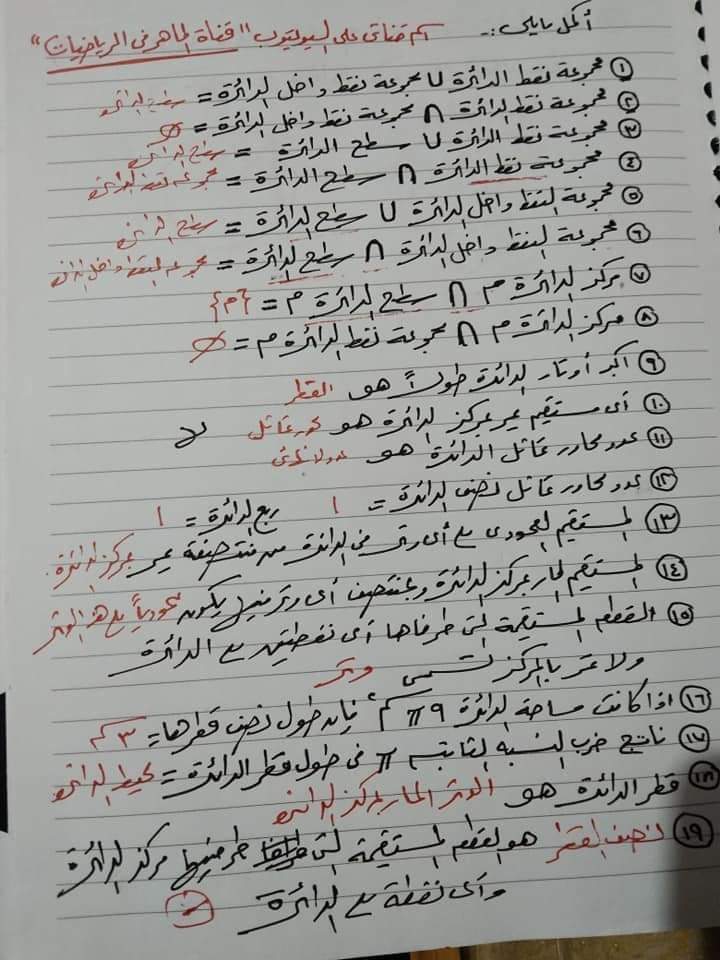 أكمل ما يلى :- اسم قناتى على اليوتيوب "قناة الماهر فى الرياضيات"
① مجموعة نقط الدائرة U مجموعة نقط داخل الدائرة = سطح الدائرة
② مجموعة نقط الدائرة ∩ مجموعة نقط داخل الدائرة = ∅
③ مجموعة نقط الدائرة U سطح الدائرة = سطح الدائرة
④ مجموعة نقط الدائرة ∩ سطح الدائرة = مجموعة نقط الدائرة
⑤ مجموعة النقط داخل الدائرة U سطح الدائرة = سطح الدائرة
⑥ مجموعة النقط داخل الدائرة ∩ سطح الدائرة = مجموعة النقط داخل الدائرة
⑦ مركز الدائرة م ∩ سطح الدائرة م = {م}
⑧ مركز الدائرة م ∩ مجموعة نقط الدائرة م = ∅
⑨ اكبر أوتار الدائرة طولاً هو القطر
⑩ أى مستقيم يمر بمركز الدائرة هو محور تماثل لها
⑪ عدد محاور تماثل الدائرة هو عدد لا نهائى
⑫ عدد محاور تماثل نصف الدائرة = ١ ربع الدائرة = ١
⑬ المستقيم العمودى على أى وتر فى الدائرة من منتصفه يمر بمركز الدائرة.
⑭ المستقيم المار بمركز الدائرة وبمنتصف أى وتر فيها يكون عمودياً على هذا الوتر
⑮ القطعة المستقيمة التى طرفاها أى نقطتين على الدائرة
ولا تمر بالمركز تسمى وتر
⑯ اذا كانت مساحة الدائرة ٩π سم٢ فإن طول نصف قطرها = ٣ سم
⑰ ناتج ضرب النسبة الثابتة π فى طول قطر الدائرة = محيط الدائرة
⑱ قطر الدائرة هو الوتر المار بمركز الدائرة
⑲ نصف القطر هو القطعة المستقيمة التى طرفيها مركز الدائرة
وأى نقطة على الدائرة